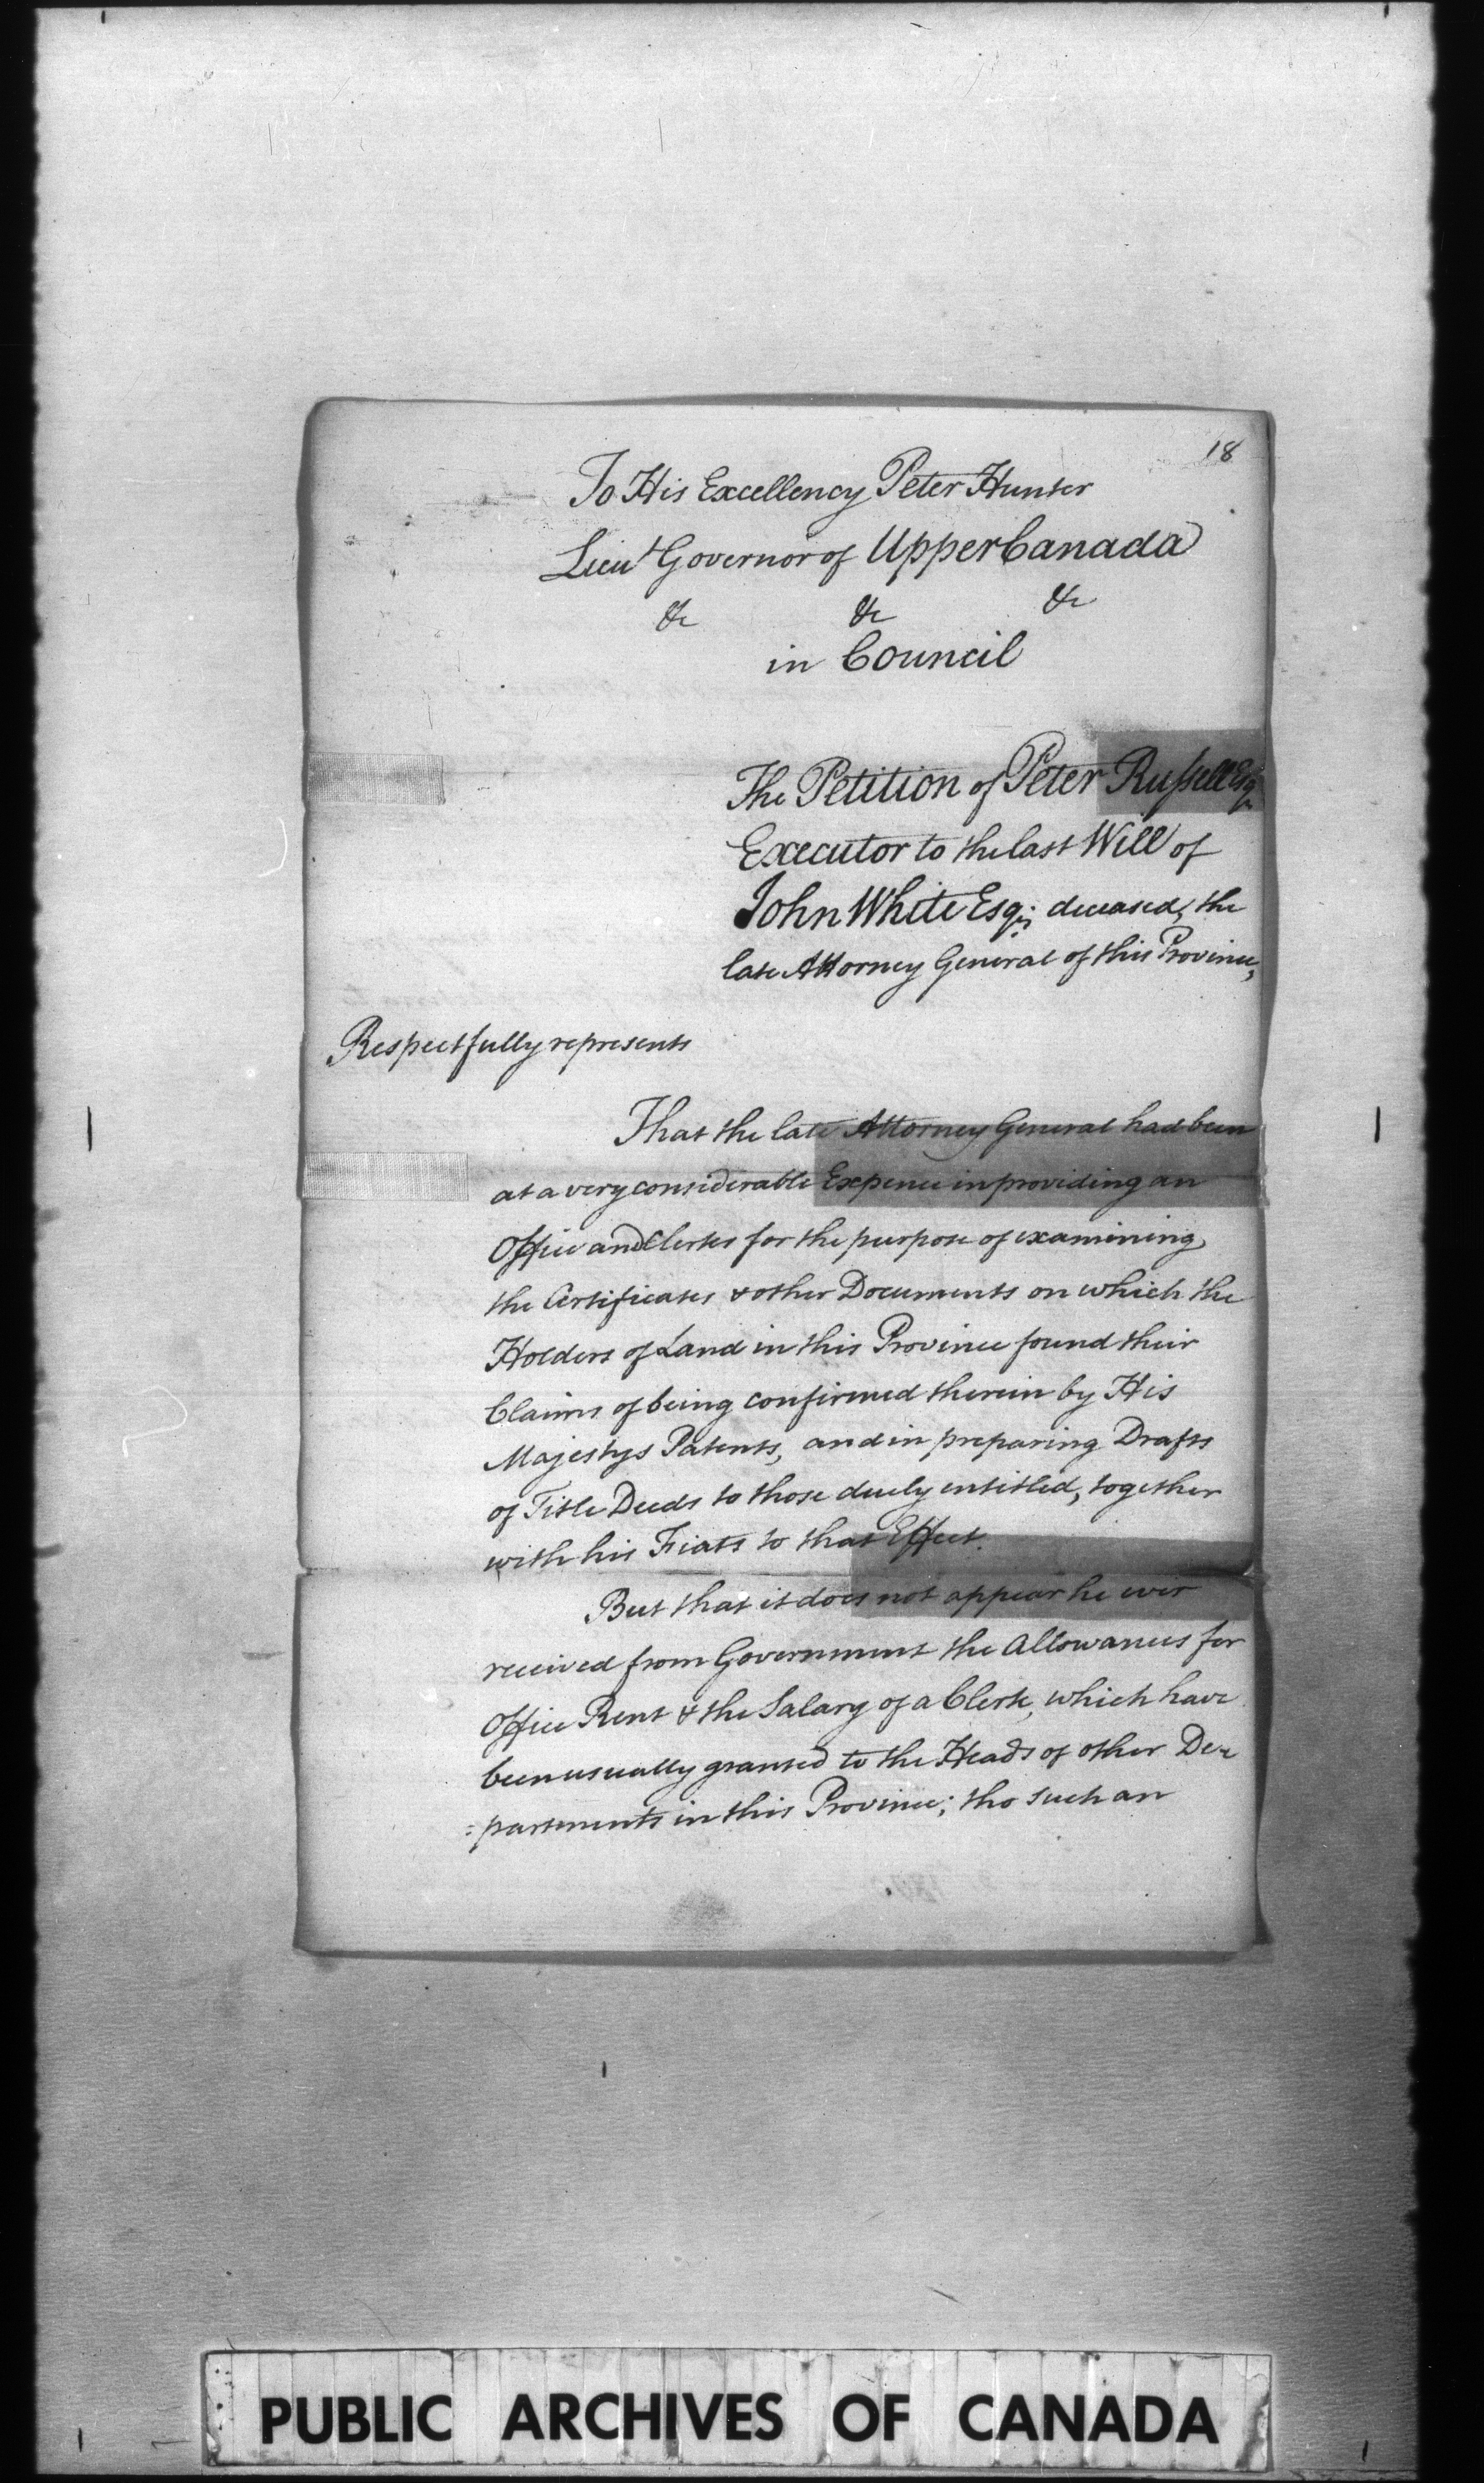 18
To His Excellency Peter Hunter
Lieut Governor of Upper Canada
&c &c &c
in Council
The Petition of Peter Russell Esqr
Executor to the last Will of
John White Esqr; deceased, the
late Attorney General of this Province,
Respectfully represents
That the late Attorney General had been
at a very considerable Expence in providing an
Office and Clerks for the purpose of examining,
the Certificates & other Documents on which the
Holders of Land in this Province found their
Claims of being confirmed therein by His
Majestys Patents, and in preparing Drafts
of Title Deeds to those duely entitled, together
with his Fiats to that Effect.
But that it does not appear he ever
received from Government the Allowances for
Office Rent & the Salary of a Clerk, which have
been usually granted to the Heads of other De-
=partments in this Province; tho such an
PUBLIC ARCHIVES OF CANADA